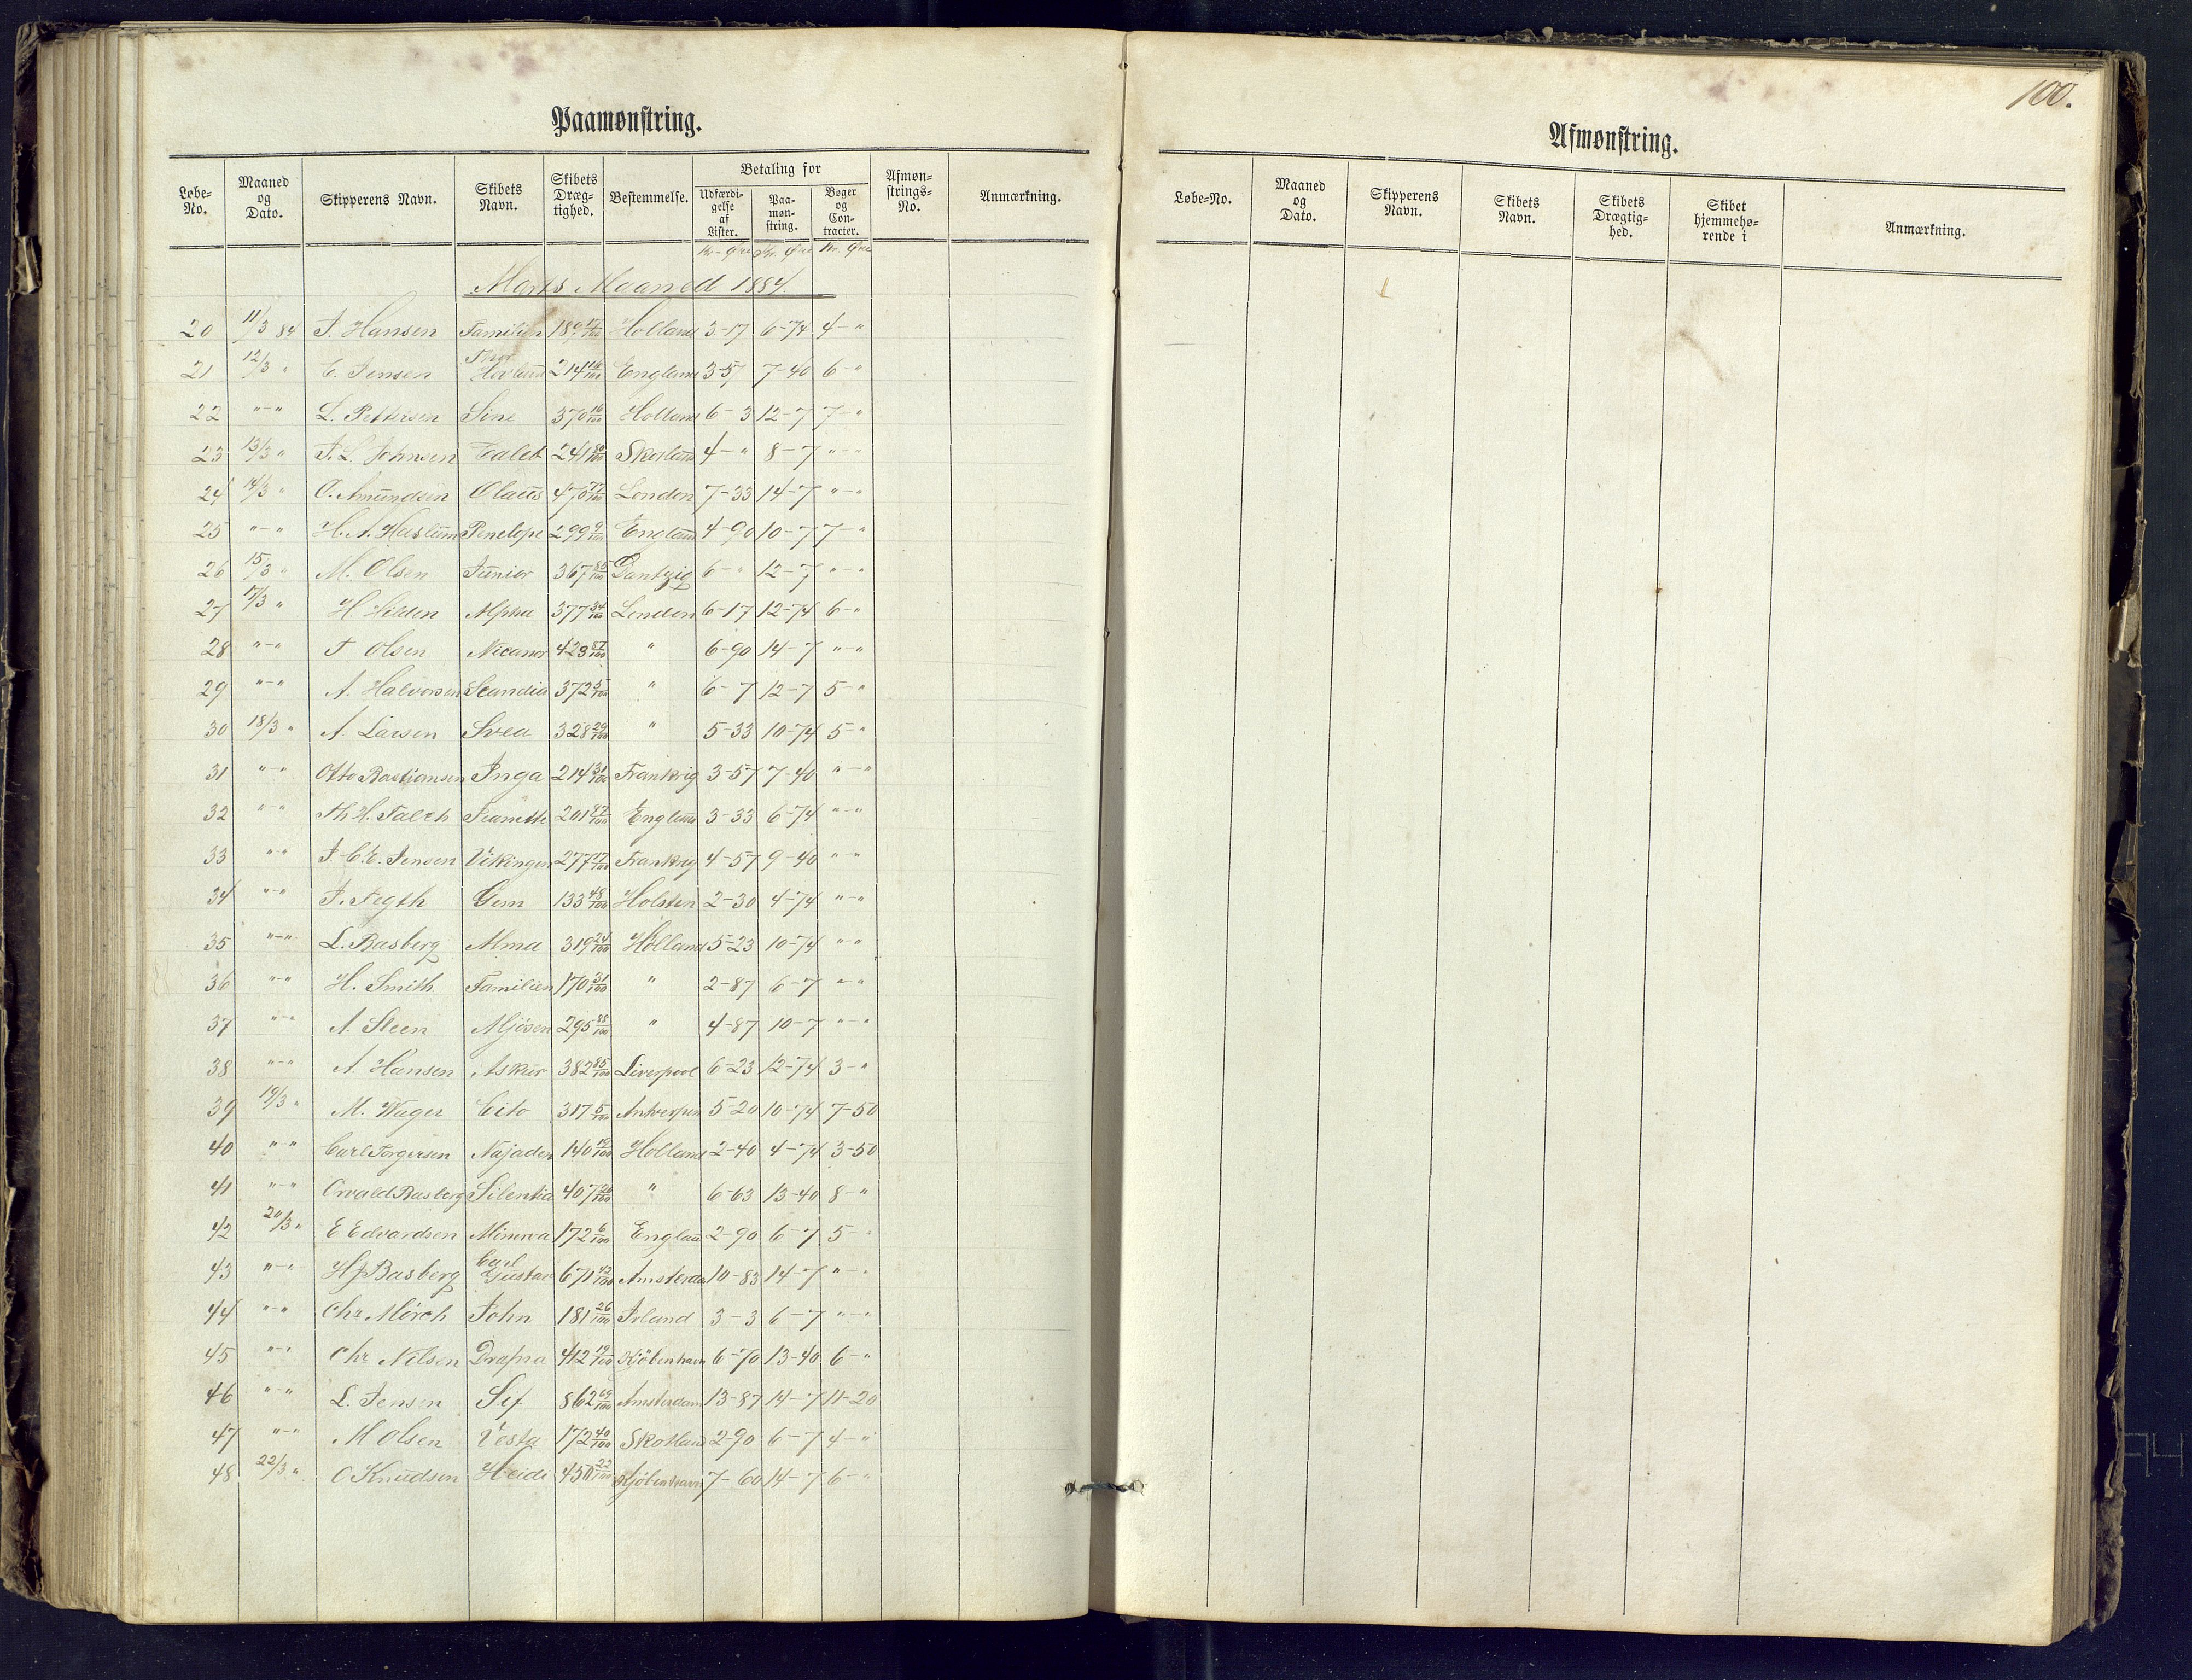 100.
Paamønstring.
Løbe-No. Maaned og Dato. Skipperens Navn. Skibets Navn. Skibets Dræg-tighed. Bestemmelse. Betaling for Udfærdi-gelse af Lister. Paa-møn-string. Bøger og Con-tracter. Afmøn-strings-No. Anmærkning.
Kr. Øre Kr. Øre Kr. Øre
Marts Maaned 1884.
20 11/3 84 J. Hansen Familien 189 Holland 3-17 6-74 4-"
21 12/3 " E. Jensen Thor 214 England 3-57 7-40 6-"
22 "-" L. Pettersen Sine 370 16/100 Holland 6-3 12-7 7-"
23 13/3 " J. L. Johnsen 241 Skotland 4-" 8-7 "-"
24 14/3 " O. Amundsen Olaus 470 77/100 London 7-33 14-7 "-"
25 "-" H. A. Haslum Penelope 299 9/100 England 4-90 10-7 7-"
26 15/3 " M. Olsen Junior 367 85/100 Dantzig 6-" 12-7 "-"
27 17/3 " H. Silden Alpha 377 34/100 London 6-17 12-74 6-"
28 "-" Olsen Nicanor 423 87/100 " 6-90 14-7 "-"
29 "-" A. Halvorsen Scandia 372 5/100 " 6-7 12-7 5-"
30 18/3 " A. Larsen Svea 328 29/100 " 5-33 10-74 5-"
31 "-" Otto Bastiansen Inga 214 31/100 Frankrig 3-57 7-40 "-"
32 "-" Th H. Falch Jeanette 201 97/100 England 3-33 6-74 "-"
33 "-" J. C. E. Jensen Vikingen 277 17/100 Frankrig 4-57 9-40 "-"
34 "-" J. Fegth Gem 133 48/100 Holsten 2-30 4-74 "-"
35 "-" L. Basberg Alma 319 24/100 Holland 5-23 10-74 "-"
36 "-" H. Smith Familien 170 31/100 " 2-87 6-7 "-"
37 "-" A. Steen Mjösen 295 88/100 " 4-87 10-7 "-"
38 "-" A. Hansen Askur 382 85/100 Liverpool 6-23 12-74 3-"
39 19/3 " M. Wager Cito 317 5/100 Antverpen 5-20 10-74 7-50
40 "-" Carl Torgersen Najaden 140 19/100 Holland 2-40 4-74 3-50
41 "-" Orvald Basberg Silentia 407 26/100 " 6-63 13-40 8-"
42 20/3 " E Edvardsen Minerva 172 6/100 England 2-90 6-7 5-"
43 "-" H J Basberg Carl Gustav 671 42/100 Amsterdam 10-83 14-7 "-"
44 "-" Chr Mörch John 181 26/100 Irland 3-3 6-7 "-"
45 "-" Chr Nilsen Drapa 412 19/100 Kjöbenhavn 6-70 13-40 6-"
46 "-" L. Jensen Sif 862 69/100 Amsterdam 13-87 14-7 11-20
47 "-" M Olsen Vesta 172 40/100 Skotland 2-90 6-7 4-"
48 22/3 " O Knudsen Heidi 450 22/100 Kjöbenhavn 7-60 14-7 6-"
Afmønstring.
Løbe-No. Maaned og Dato. Skipperens Navn. Skibets Navn. Skibets Drægtig-hed. Skibet hjemmehø-rende i Anmærkning.